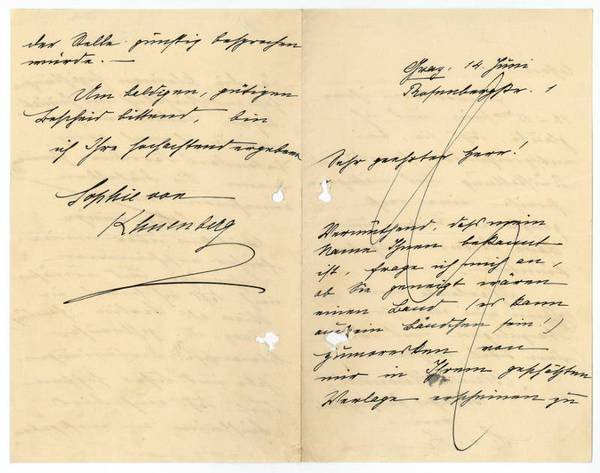 Graz, 14. Juni
Rosenbergstr. 1
Sehr geehrter Herr!
Vermuthend, dass mein
Name Ihnen bekannt
ist, frage ich mich an,
ob Sie geneigt wären
einen Band (er kann
auch ein Bändchen sein!)
Humoresken von
mir in Ihrem geschätzten
Verlage erscheinen zu
der Stelle günstig besprochen
würde. —
Um baldigen, gütigen
Bescheid bittend, bin
ich Ihre hochachtend ergebene
Sophie von
Khuenberg